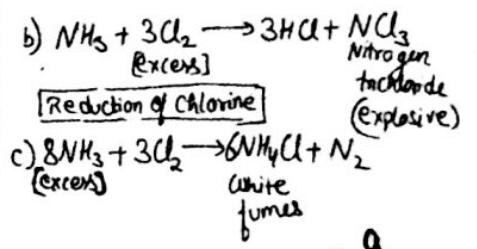 b) NH₃ + 3Cl₂ → 3HCl + NCl₃
[excess]
Nitrogen
trichloride
(explosive)
[Reduction of Chlorine]
c) 8NH₃ + 3Cl₂ → 6NH₄Cl + N₂
[excess]
White
fumes